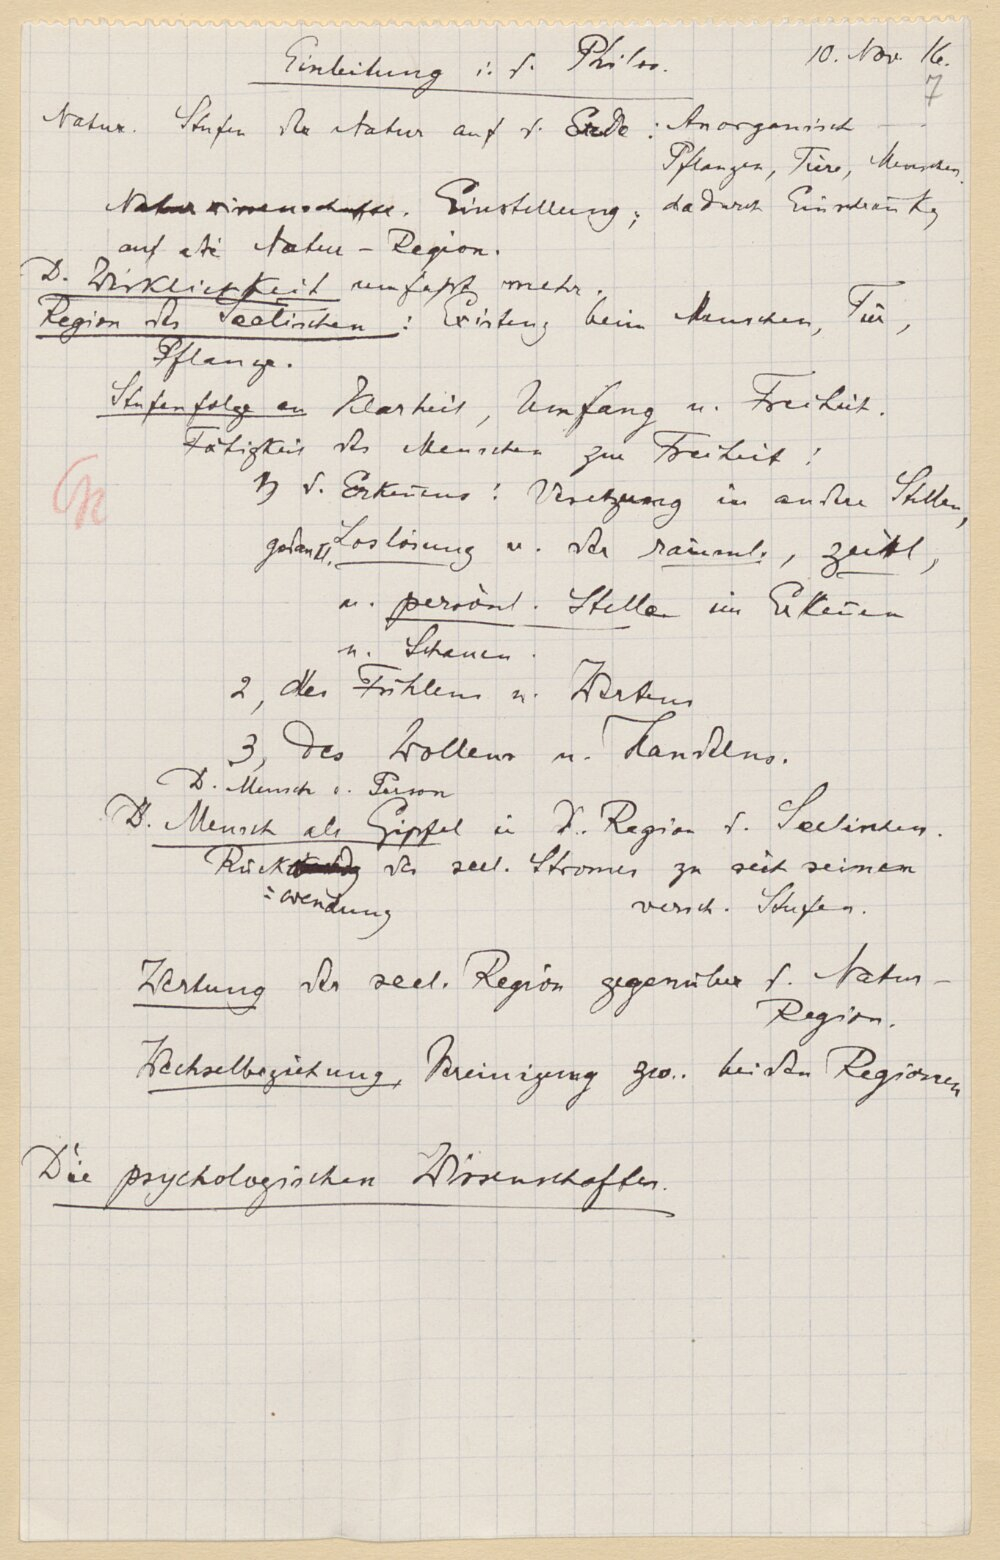 Einleitung i. d. Philos.
10. Nov. 16.
7
Natur. Stufen der Natur auf d. Erde : Anorganisch
Pflanzen, Tiere, Menschen.
Naturwissenschaftl. Einstellung; dadurch Einschränkg
auf die Natur-Region.
D. Wirklichkeit umfasst mehr.
Region des Seelischen : Existenz beim Menschen, Tier,
Pflanze.
Stufenfolge an Klarheit, Umfang u. Freiheit.
Fähigkeit des Menschen zur Freiheit :
1) d. Erkennens : Versetzung in andere Stellen,
gedankl. Loslösung v. der räuml., zeitl,
u. persönl. Stelle im Erkennen
u. Schauen.
2, des Fühlens u. Wertens
3, des Wollens u. Handelns.
D. Mensch a. Person
D. Mensch als Gipfel in d. Region d. Seelischen.
Rück der seel. Stromes zu sich seinen
=wendung versch. Stufen.
Wertung der seel. Region gegenüber d. Natur-
Region.
Wechselbeziehung, Vereinigung zw. beiden Regionen
Die psychologischen Wissenschaften.